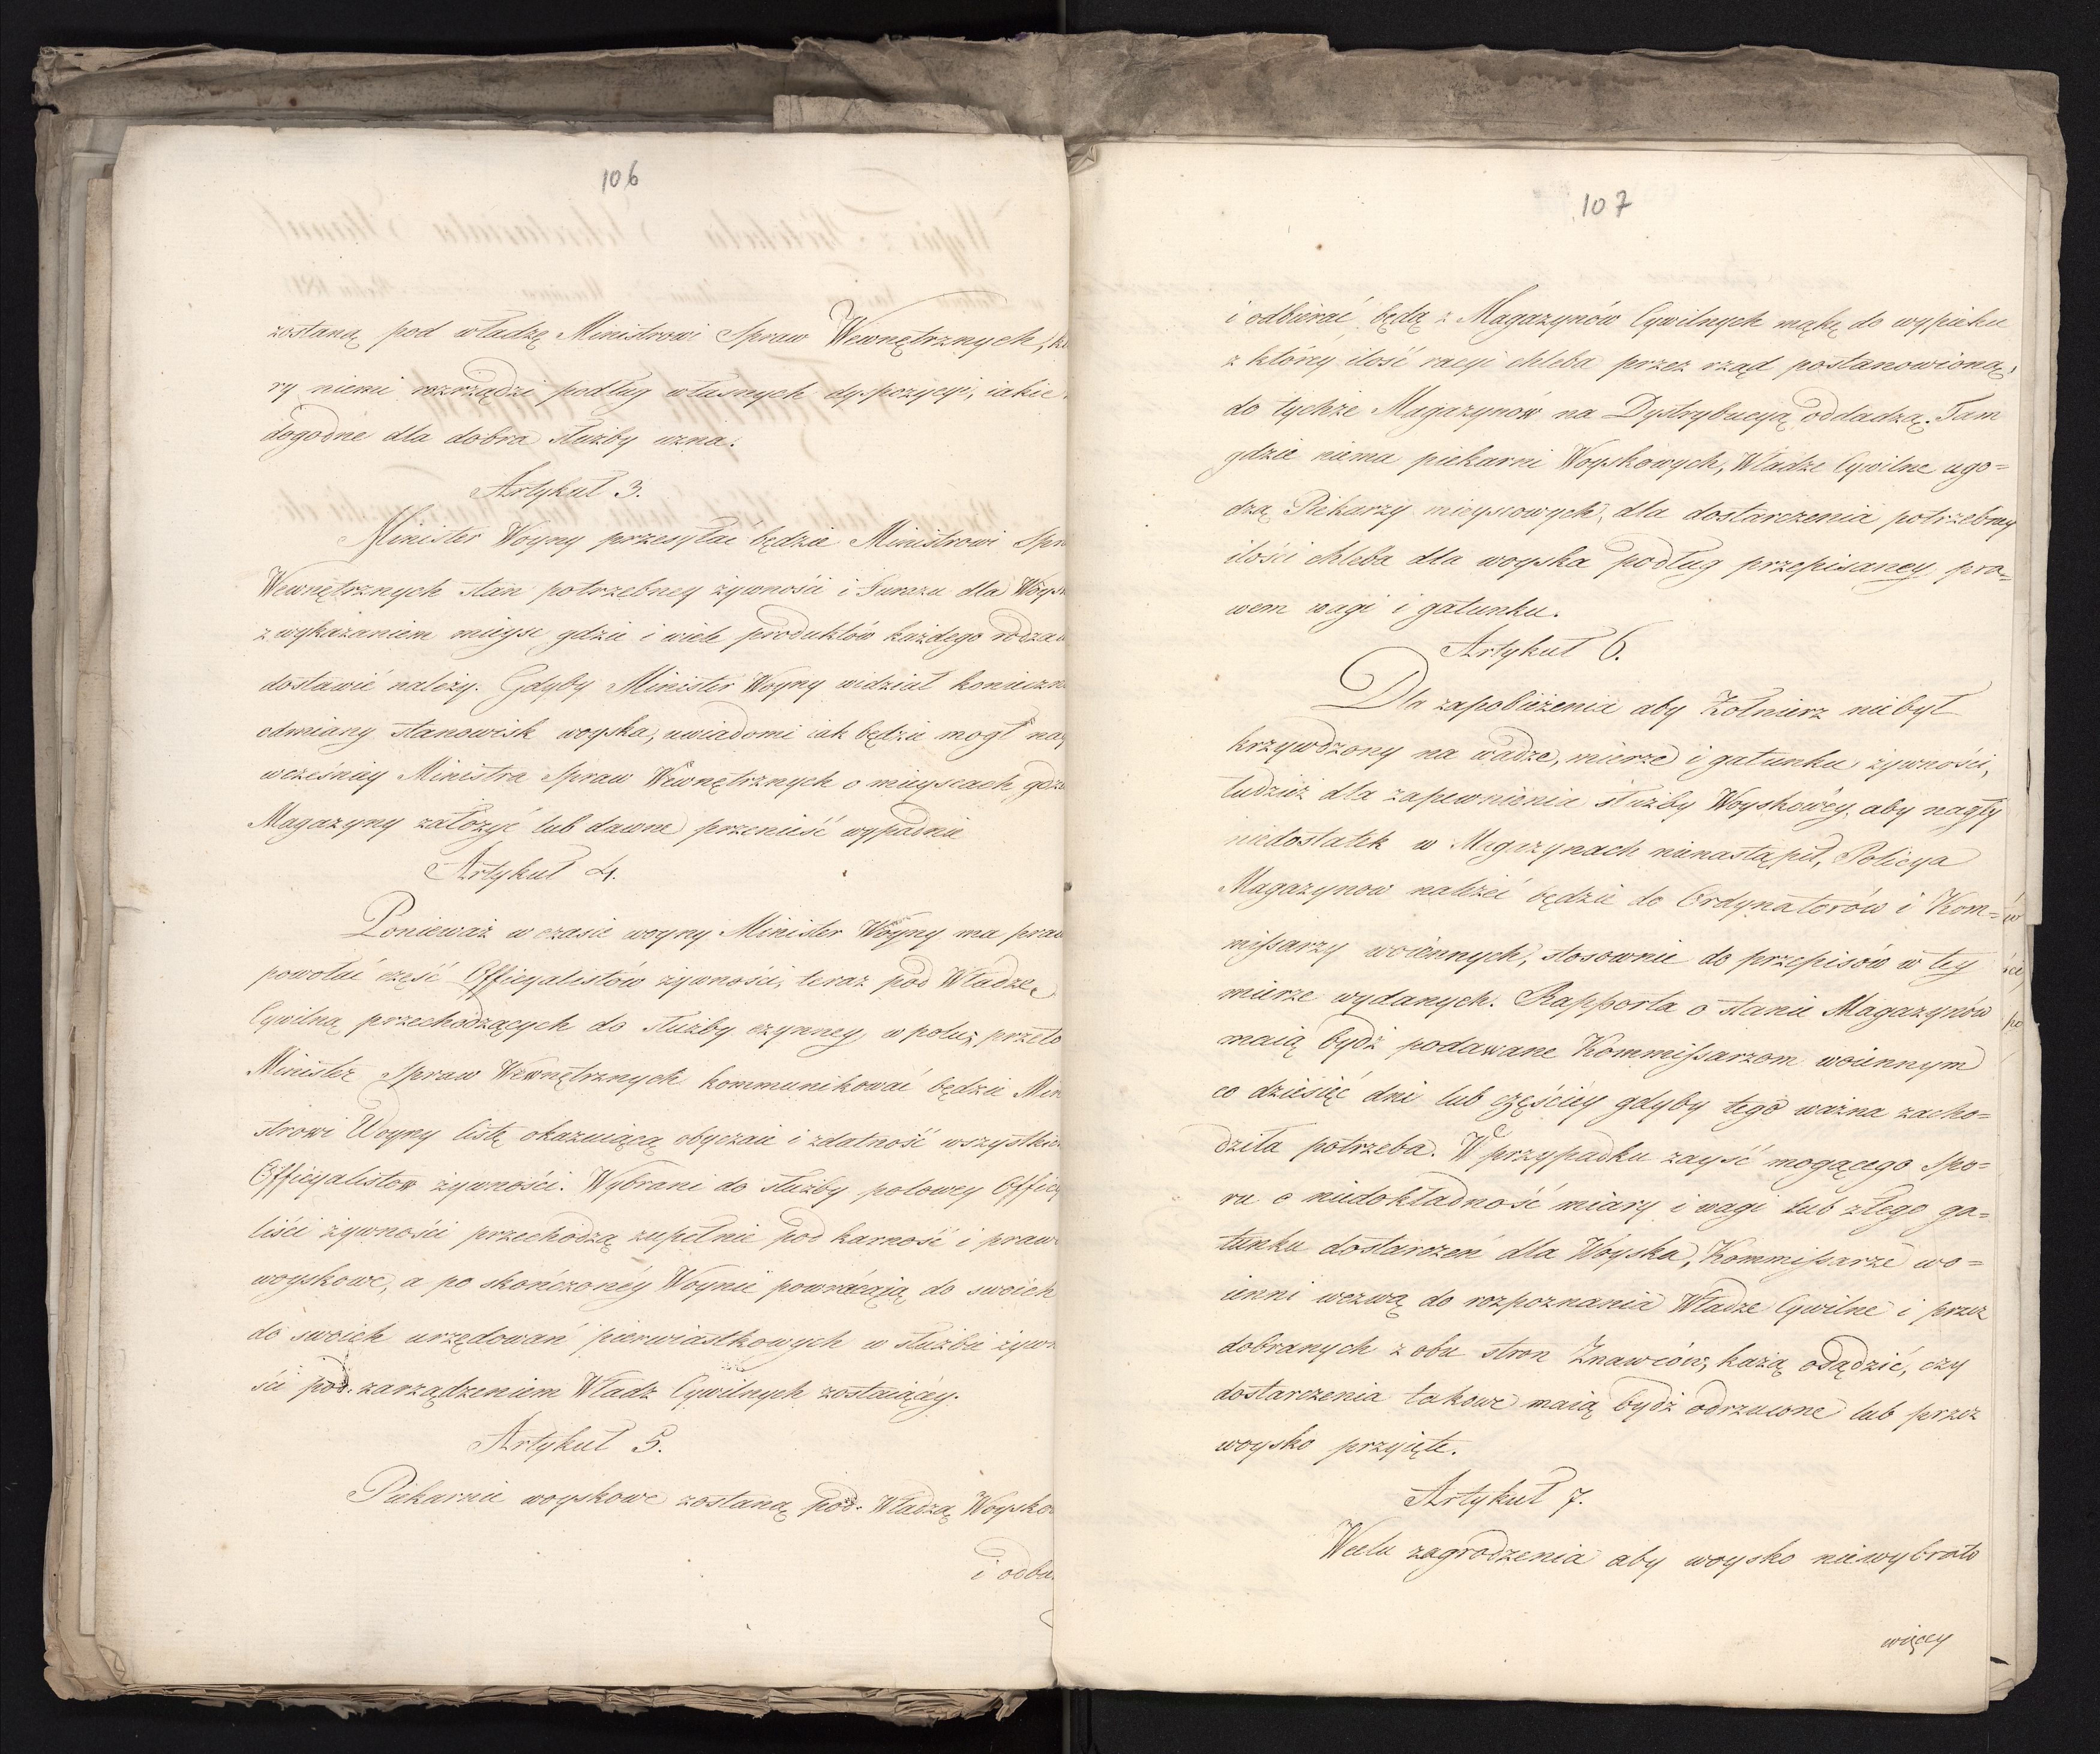 106
zostaną pod władzę Ministrowi Spraw Wewnętrznych, kt
ry niemi rozrządzi podług własnych dyspozycyi, iakie
dogodne dla dobra służby uzna.
Artykuł 3.
Minister Woyny przesyłać będzie Ministrowi Spra
Wewnętrznych stan potrzebney żywności i Furażu dla Woys
z wykazaniem mieysc gdzie i wiele produktów każdego rodzaiu
dostawić należy. Gdyby Minister Woyny widział konieczn
odmiany stanowisk woyska, uwiadomi iak będzie mogł nay
wcześniey Ministra Spraw Wewnętrznych o mieyscach gdzie
Magazyny założyć lub dawne przenieść wypadnie
Artykuł 4.
Ponieważ w czasie woyny Minister Woyny ma praw
powołać część Officyalistów żywności, teraz pod Władzę
Cywilną przechodzących do służby czynney w polu, przeto
Minister Spraw Wewnętrznych kommunikować będzie Min
strowi Woyny listę okazuiącą obyczaie i zdatność wszystkich
Officyalistow żywności. Wybrani do służby polowey Officy
liści żywności przechodzą zupełnie pod karność i praw
woyskowe, a po skończonéy Woynie powracaią do swoich
do swoich urzędowań pierwiastkowych w służbie żywn
ści pod zarządzeniem Władz Cywilnych zostaiącéy.
Artykuł 5.
Piekarnie woyskowe zostaną pod Władzą Woysko
i odbie
107
i odbierać będą z Magazynów Cywilnych mąkę do wypieku
z któréy ilość racyi chleba przez rząd postanowioną,
do tychże Magazynów na Dystrybucyą oddadzą. Tam
gdzie niema piekarni Woyskowych, Władze Cywilne ugo=
dzą Piekarzy mieyscowych, dla dostarczenia potrzebney
ilości chleba dla woyska podług przepisaney pra=
wem wagi i gatunku.
Artykuł 6.
Dla zapobieżenia aby Żołnierz niebył
krzywdzony na wadze, mierze i gatunku żywności,
tudzież dla zapewnienia służby Woyskowéy, aby nagły
niedostatek w Magazynach nienastąpił, Policya
Magazynow należeć będzie do Ordynatorów i Kom=
missarzy woiennych, stosownie do przepisów w tey
mierze wydanych. Rapporta o stanie Magazynów
maią bydź podawane Kommissarzom woiennym
co dziesięć dni lub częściey gdyby tego ważna zacho=
dziła potrzeba. W przypadku zayść mogącego spo=
ru o niedokładność miary i wagi lub złego ga=
tunku dostarczeń dla Woyska, Kommissarze wo=
ienni wezwą do rozpoznania Władze Cywilne i przez
dobranych z obu stron Znawców, każą osądzić, czy
dostarczenia takowe maią bydź odrzucone lub przez
woysko przyięte.
Artykuł 7.
Wcelu zagrodzenia aby woysko niewybrało
więcey